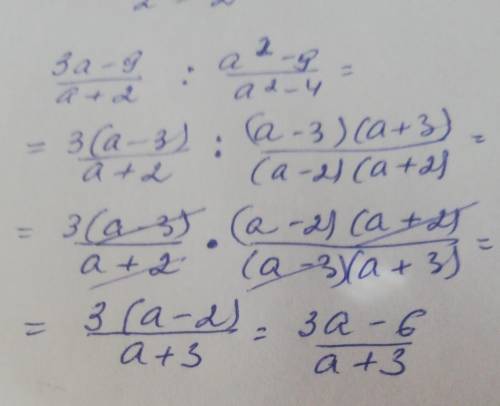 (3a-9)/(a+2) : (a²-9)/(a²-4) =
= 3(a-3)/(a+2) : (a-3)(a+3)/(a-2)(a+2) =
= 3(a-3)/(a+2) · (a-2)(a+2)/(a-3)(a+3) =
= 3(a-2)/(a+3) = (3a-6)/(a+3)